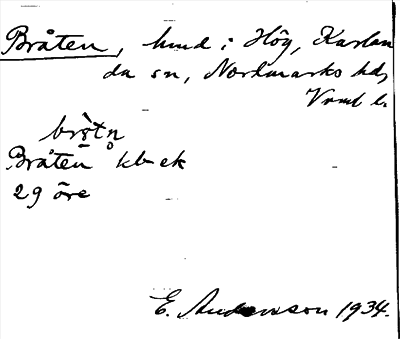 Bråten, hmd i Hög, Karlan
da sn, Nordmarks hd,
Vrml l.
Bråten kb ek
29 öre
E. Andersson 1934.